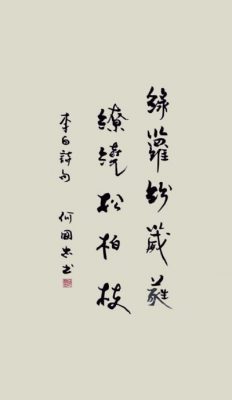 綠蘿紛葳蕤
繚繞松柏枝
李白詩句 何國忠书